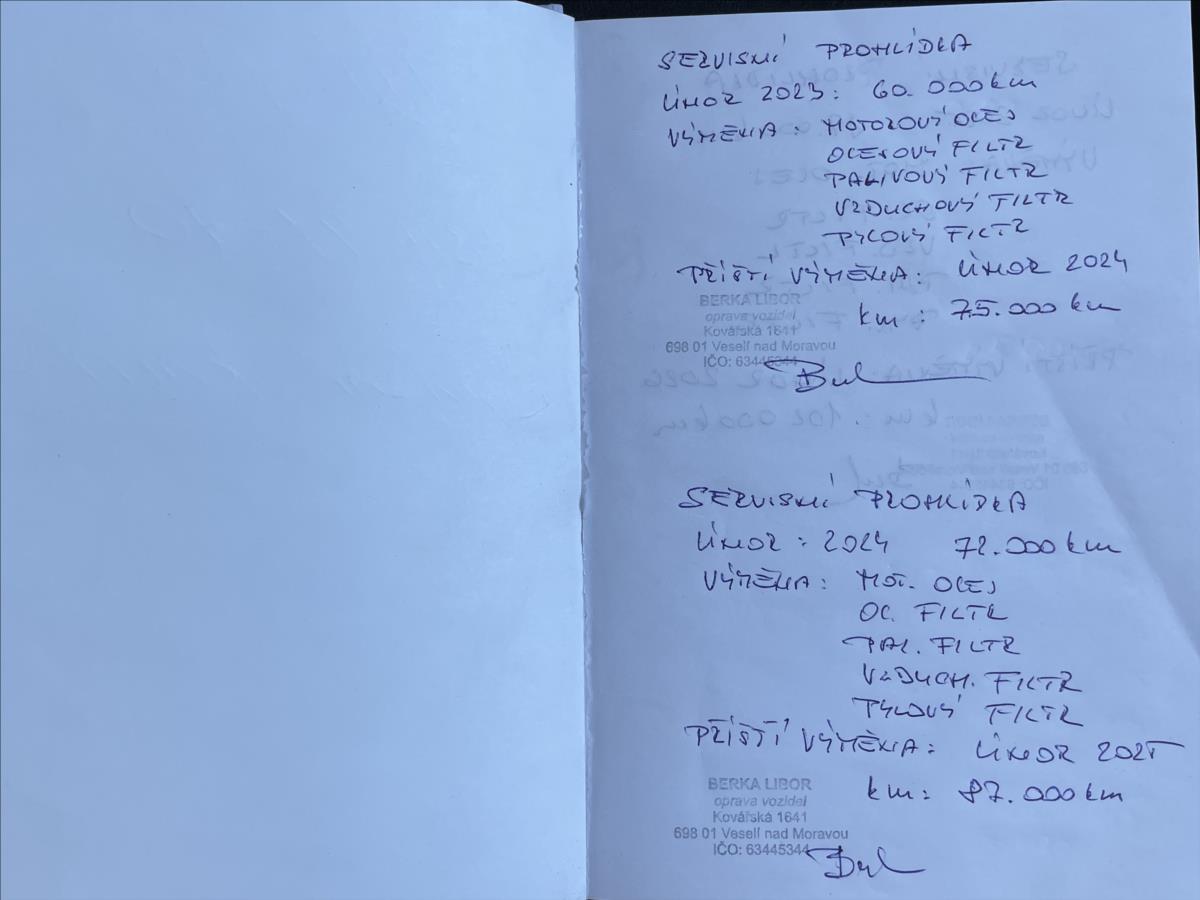 SERVISNÍ PROHLÍDKA
ÚNOR 2023: 60.000km
VÝMĚNA: MOTOROVÝ OLEJ
OLEJOVÝ FILTR
PALIVOVÝ FILTR
VZDUCHOVÝ FILTR
PYLOVÝ FILTR
PŘÍŠTÍ VÝMĚNA: ÚNOR 2024
km: 75.000km
BERKA LIBOR
oprava vozidel
Kovářská 1641
698 01 Veselí nad Moravou
IČO: 63445344
SERVISNÍ PROHLÍDKA
ÚNOR: 2024 72.000km
VÝMĚNA: MOT. OLEJ
OL. FILTR
PAL. FILTR
VZDUCH. FILTR
PYLOVÝ FILTR
PŘÍŠTÍ VÝMĚNA: ÚNOR 2025
km: 87.000km
BERKA LIBOR
oprava vozidel
Kovářská 1641
698 01 Veselí nad Moravou
IČO: 63445344